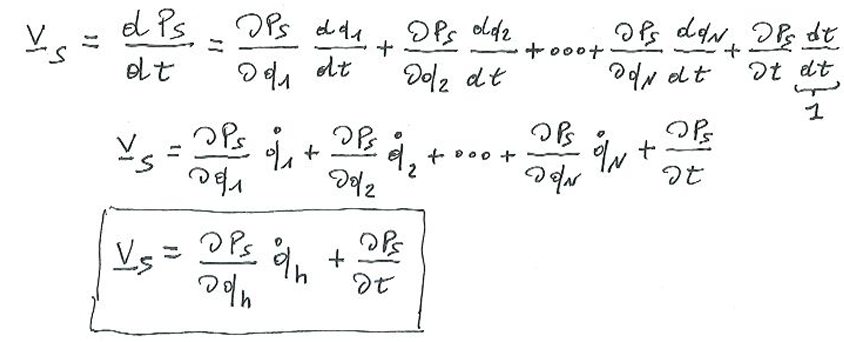 V̲_s = dP_s/dt = ∂P_s/∂q_1 dq_1/dt + ∂P_s/∂q_2 dq_2/dt + ... + ∂P_s/∂q_N dq_N/dt + ∂P_s/∂t dt/dt
1
V̲_s = ∂P_s/∂q_1 q̇_1 + ∂P_s/∂q_2 q̇_2 + ... + ∂P_s/∂q_N q̇_N + ∂P_s/∂t
V̲_s = ∂P_s/∂q_h q̇_h + ∂P_s/∂t